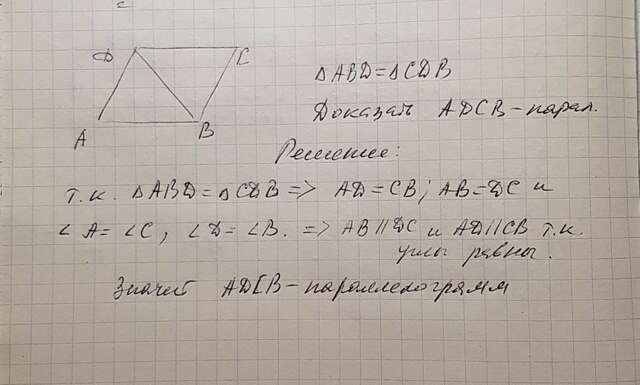 D C
A B
△ABD=△CDB
Доказать ADCB-парал.
Решение:
т.к. △ABD=△CDB => AD=CB; AB=DC и
∠A=∠C, ∠D=∠B. => AB||DC и AD||CB т.к.
углы равны.
Значит ADCB-параллелограмм